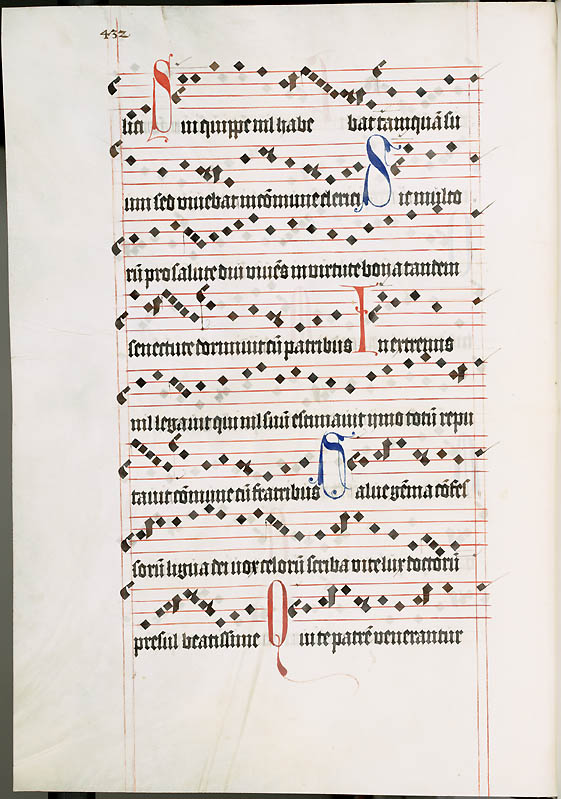 432
lici Sui quippe nil habebat tamquã su
um sed vivebat in cõmune clerici Sic multo
rũ pro salute diu vivẽs in virtute bona tandem
senectute dormivit cũ patribus In extremis
nil legavit qui nil suũ estimavit ymo totũ repu
tavit cõmune cũ fratribus Salve gẽma cõfes
sorũ ligua dei vox celorũ scriba vite lux doctorũ
presul beatissime Qui te patrẽ venerantur